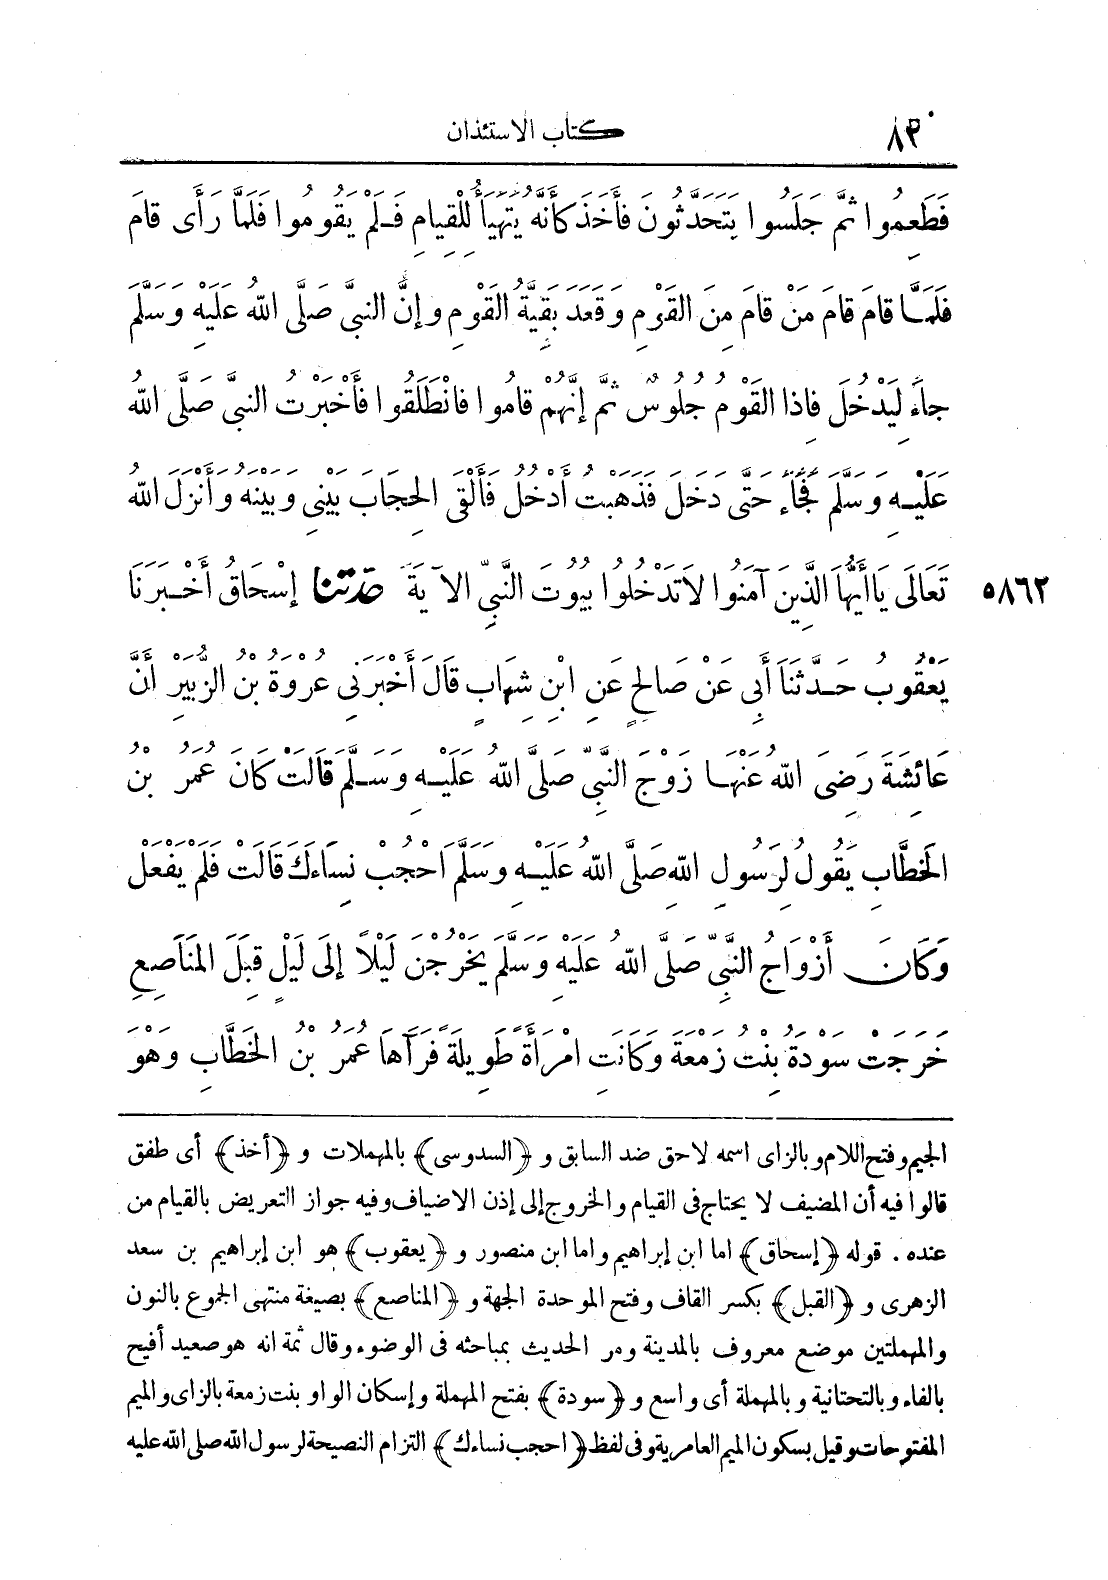 ٨٢ كتاب الاستئذان
فَطَعِمُوا ثُمَّ جَلَسُوا يَتَحَدَّثُونَ فَأَخَذَ كَأَنَّهُ يَتَهَيَّأُ لِلْقِيامِ فَلَمْ يَقُومُوا فَلَمَّا رَأَى قامَ
فَلَمَّا قامَ قامَ مَنْ قامَ مِنَ القَوْمِ وَقَعَدَ بَقِيَّةُ القَوْمِ وإنَّ النبىَّ صَلَّى اللهُ عَلَيْهِ وَسَلَّمَ
جاءَ لِيَدْخُلَ فاِذا القَوْمُ جُلُوسٌ ثمَّ إنَّهُمْ قامُوا فانْطَلَقُوا فَأَخْبَرْتُ النبىَّ صَلَّى اللهُ
عَلَيْهِ وَسَلَّمَ فَجَاءَ حَتَّى دَخَلَ فَذَهَبْتُ أَدْخُلُ فَأَلْقَى الحِجَابَ بَيْنِي وَبَيْنَهُ وَأَنْزَلَ اللهُ
تَعَالَى يَاأَيُّهَا الَّذِينَ آمَنُوا لاَتَدْخُلُوا بُيُوتَ النَّبِيِّ الآيَةَ حَدّثنا إسْحَاقُ أَخْبَرَنَا ٥٨٦٢
يَعْقُوبُ حَدَّثَنَا أَبِى عَنْ صَالِحٍ عَنِ ابْنِ شِهَابٍ قَالَ أَخْبَرَنِى عُرْوَةُ بْنُ الزُّبَيْرِ أَنَّ
عَائِشَةَ رَضِىَ اللهُ عَنْهَا زَوْجَ النَّبِيِّ صَلَّى اللهُ عَلَيْهِ وَسَلَّمَ قَالَتْ كَانَ عُمَرُ بْنُ
الخَطَّابِ يَقُولُ لِرَسُولِ اللهِ صَلَّى اللهُ عَلَيْهِ وَسَلَّمَ احْجُبْ نِسَاءَكَ قَالَتْ فَلَمْ يَفْعَلْ
وَكَانَ أَزْوَاجُ النَّبِيِّ صَلَّى اللهُ عَلَيْهِ وَسَلَّمَ يَخْرُجْنَ لَيْلاً إلَى لَيْلٍ قِبَلَ المَنَاصِعِ
خَرَجَتْ سَوْدَةُ بِنْتُ زَمْعَةَ وَكَانَتِ امْرَأَةً طَوِيلَةً فَرَآهَا عُمَرُ بْنُ الخَطَّابِ وَهْوَ
الجيم وفتح اللام وبالزاى اسمه لاحق ضد السابق و ﴿السدوسى﴾ بالمهملات و ﴿أخذ﴾ أى طفق
قالوا فيه أن المضيف لا يحتاج فى القيام والخروج إلى إذن الاضياف وفيه جواز التعريض بالقيام من
عنده. قوله ﴿إسحاق﴾ اما ابن إبراهيم واما ابن منصور و ﴿يعقوب﴾ هو ابن إبراهيم بن سعد
الزهرى و ﴿القبل﴾ بكسر القاف وفتح الموحدة الجهة و ﴿المناصع﴾ بصيغة منتهى الجموع بالنون
والمهملتين موضع معروف بالمدينة ومر الحديث بمباحثه فى الوضوء وقال ثمة انه هو صعيد أفيح
بالفاء وبالتحتانية وبالمهملة أى واسع و ﴿سودة﴾ بفتح المهملة وإسكان الواو بنت زمعة بالزاى والميم
المفتوحات وقيل بسكون الميم العامرية وفى لفظ ﴿احجب نساءك﴾ التزام النصيحة لرسول الله صلى الله عليه